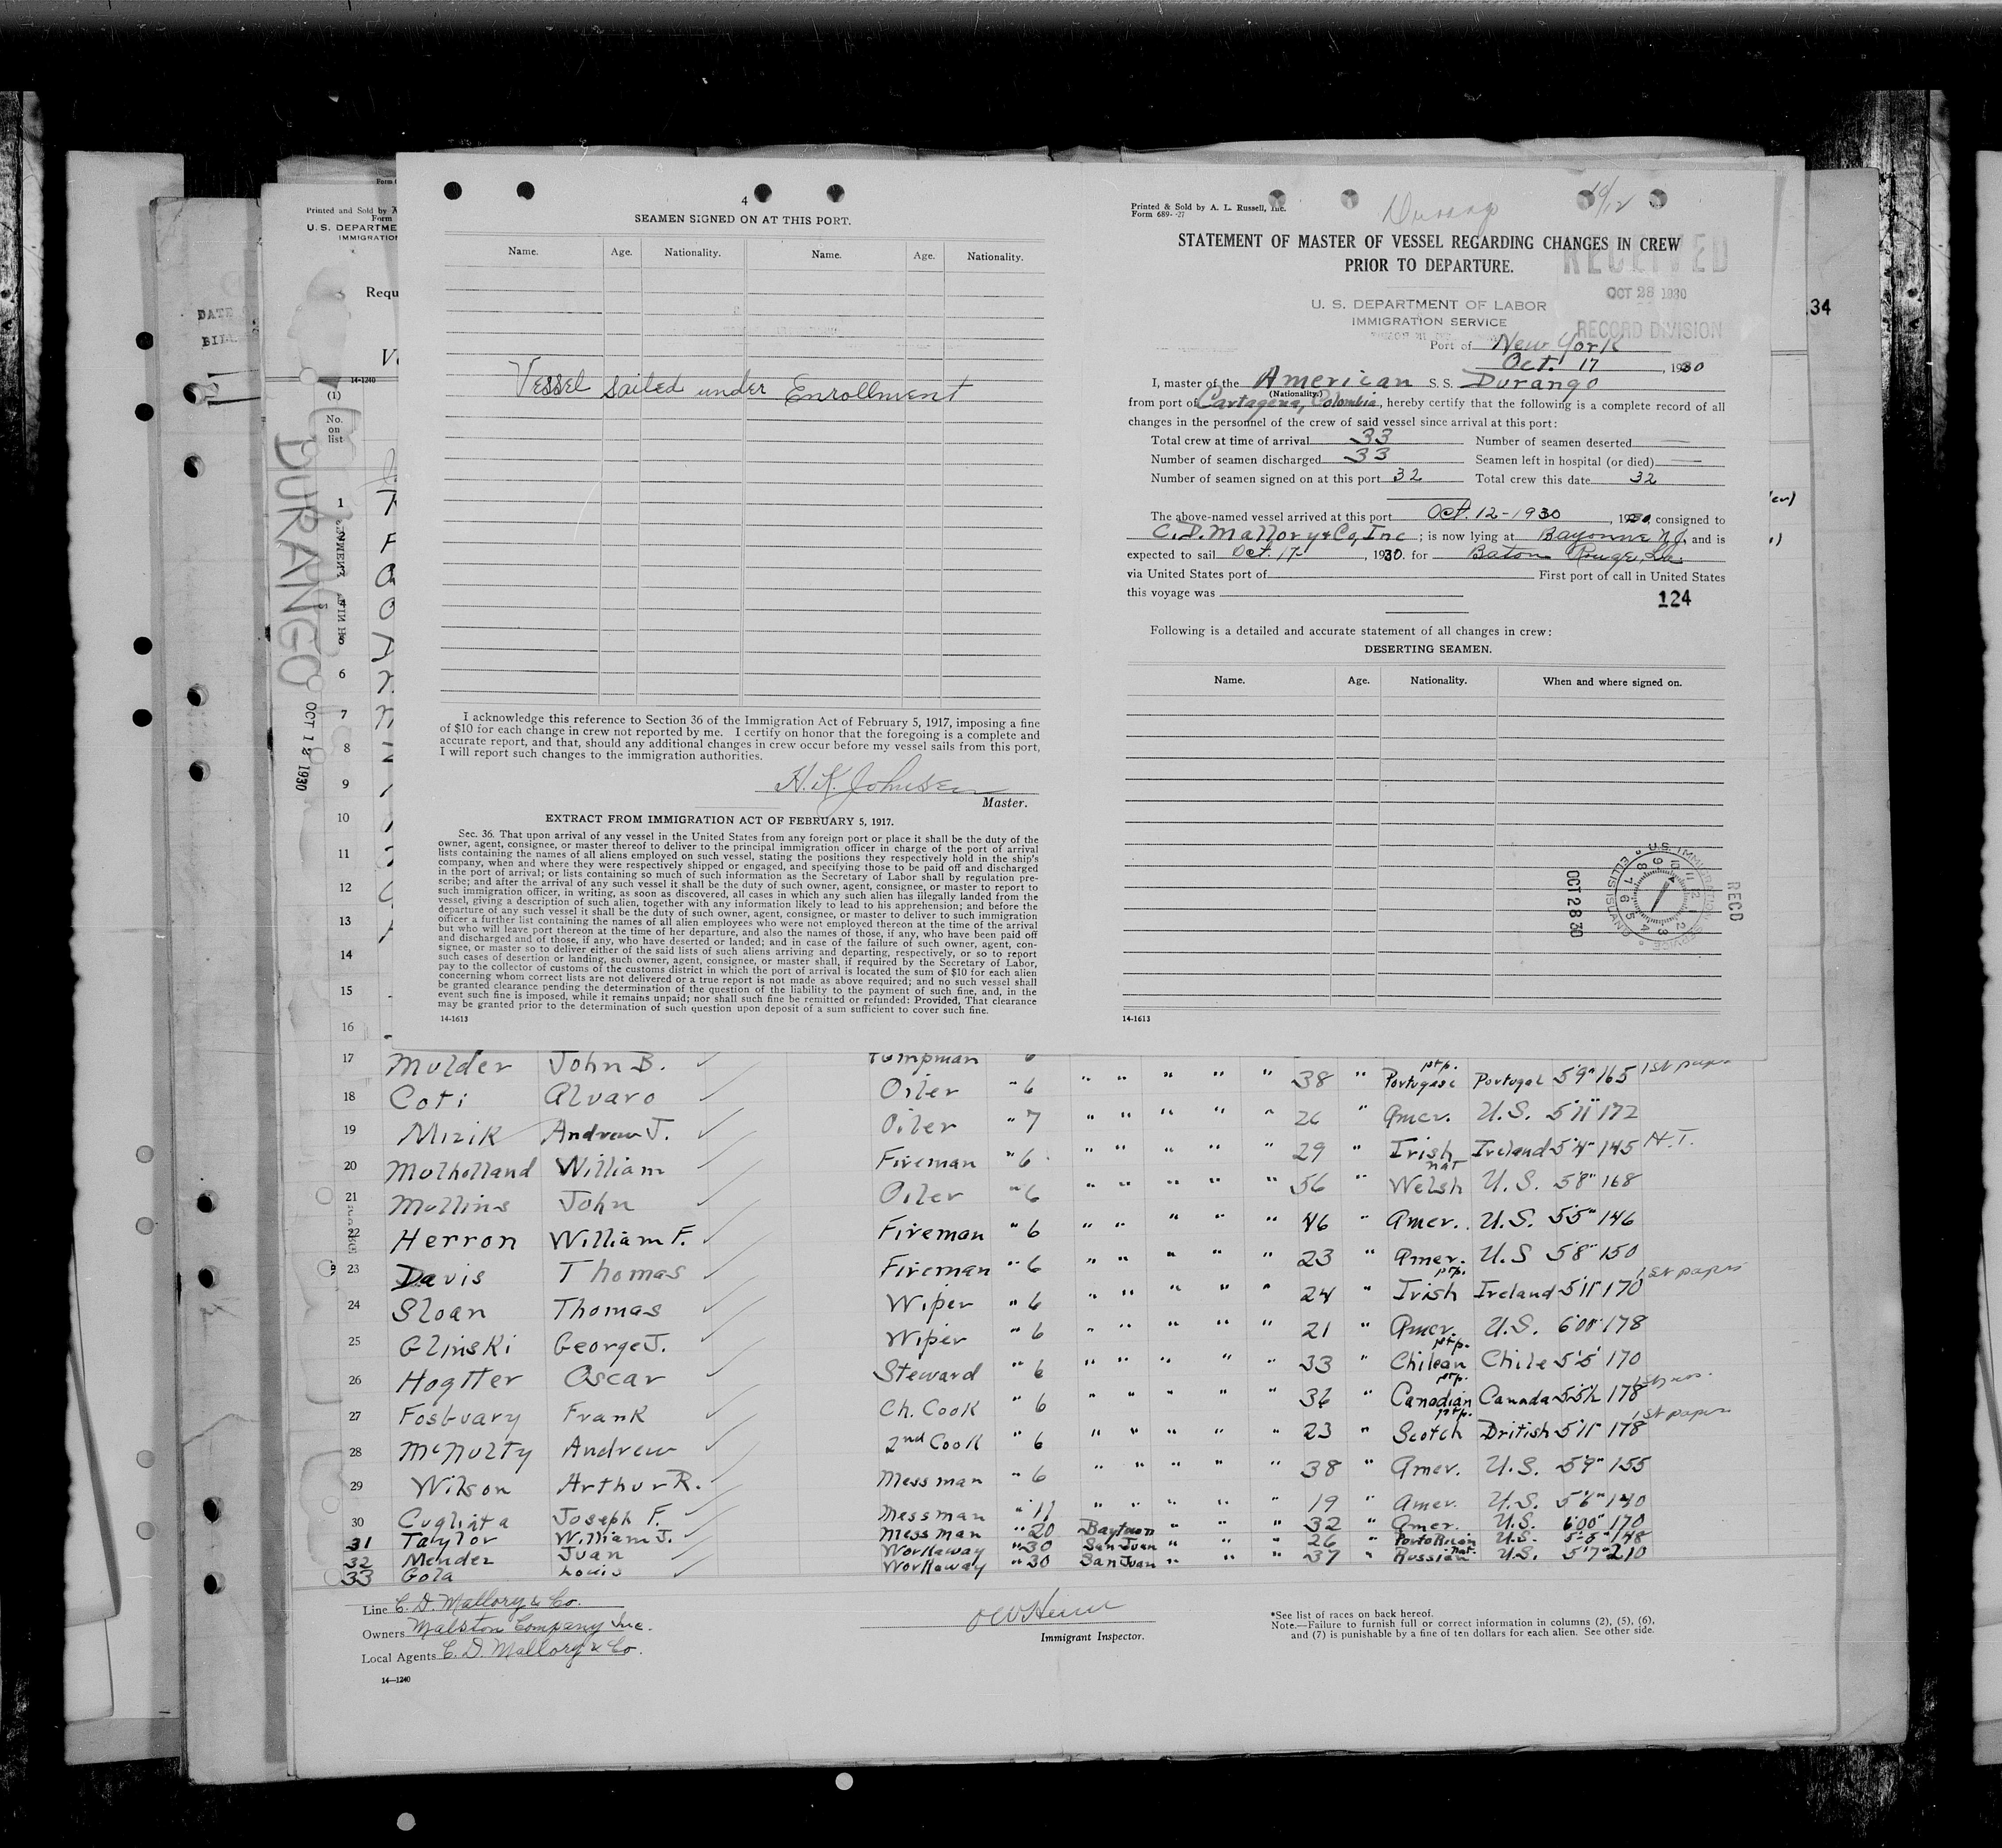 4
SEAMEN SIGNED ON AT THIS PORT.
Name. Age. Nationality. Name. Age. Nationality.
Vessel sailed under Enrollment
I acknowledge this reference to Section 36 of the Immigration Act of February 5, 1917, imposing a fine
of $10 for each change in crew not reported by me. I certify on honor that the foregoing is a complete and
accurate report, and that, should any additional changes in crew occur before my vessel sails from this port,
I will report such changes to the immigration authorities.
H. K. Johnsen
Master.
EXTRACT FROM IMMIGRATION ACT OF FEBRUARY 5, 1917.
Sec. 36. That upon arrival of any vessel in the United States from any foreign port or place it shall be the duty of the
owner, agent, consignee, or master thereof to deliver to the principal immigration officer in charge of the port of arrival
lists containing the names of all aliens employed on such vessel, stating the positions they respectively hold in the ship's
company, when and where they were respectively shipped or engaged, and specifying those to be paid off and discharged
in the port of arrival; or lists containing so much of such information as the Secretary of Labor shall by regulation pre-
scribe; and after the arrival of any such vessel it shall be the duty of such owner, agent, consignee, or master to report to
such immigration officer, in writing, as soon as discovered, all cases in which any such alien has illegally landed from the
vessel, giving a description of such alien, together with any information likely to lead to his apprehension; and before the
departure of any such vessel it shall be the duty of such owner, agent, consignee, or master to deliver to such immigration
officer a further list containing the names of all alien employees who were not employed thereon at the time of the arrival
but who will leave port thereon at the time of her departure, and also the names of those, if any, who have been paid off
and discharged and of those, if any, who have deserted or landed; and in case of the failure of such owner, agent, con-
signee, or master so to deliver either of the said lists of such aliens arriving and departing, respectively, or so to report
such cases of desertion or landing, such owner, agent, consignee, or master shall, if required by the Secretary of Labor,
pay to the collector of customs of the customs district in which the port of arrival is located the sum of $10 for each alien
concerning whom correct lists are not delivered or a true report is not made as above required; and no such vessel shall
be granted clearance pending the determination of the question of the liability to the payment of such fine, and, in the
event such fine is imposed, while it remains unpaid; nor shall such fine be remitted or refunded: Provided, That clearance
may be granted prior to the determination of such question upon deposit of a sum sufficient to cover such fine.
14-1613
Printed & Sold by A. L. Russell, Inc.
Form 689- -27
STATEMENT OF MASTER OF VESSEL REGARDING CHANGES IN CREW
PRIOR TO DEPARTURE.
RECEIVED
OCT 28 1930
RECORD DIVISION
U. S. DEPARTMENT OF LABOR
IMMIGRATION SERVICE
Port of New York
Oct. 17, 1930
I, master of the American S. S. Durango
(Nationality)
from port of Cartagena, Colombia, hereby certify that the following is a complete record of all
changes in the personnel of the crew of said vessel since arrival at this port:
Total crew at time of arrival 33 Number of seamen deserted
Number of seamen discharged 33 Seamen left in hospital (or died)
Number of seamen signed on at this port 32 Total crew this date 32
The above-named vessel arrived at this port Oct. 12-1930, 1930, consigned to
C. D. Mallory & Co, Inc; is now lying at Bayonne N.J. and is
expected to sail Oct. 17, 1930. for Baton Rouge, La.
via United States port of First port of call in United States
this voyage was
124
Following is a detailed and accurate statement of all changes in crew:
DESERTING SEAMEN.
Name. Age. Nationality. When and where signed on.
U.S. IMMIGRATION SERVICE ELLIS ISLAND
OCT 28 30
RECD
14-1613
34
Printed and Sold by
Form
U. S. DEPARTME
IMMIGRATION
Requ
14-1240
(1)
No.
on
list
DATE
DURANGO
OCT 12 1930
1
6
7
8
9
10
11
12
13
14
15
16
17 Mulder John B. Pumpman
18 Coti Alvaro Oiler " 6 " " " " " 38 " Portugese Portugal 5'9" 165 1st paper
19 Mizik Andrew J. Oiler " 7 " " " " " 26 " Amer. U.S. 5'11" 172
20 Mulholland William Fireman " 6 " " " " " 29 " Irish Ireland 5'4" 145 H.T.
21 Mullins John Oiler " 6 " " " " " 56 " Welsh nat U.S. 5'8" 168
22 Herron William F. Fireman " 6 " " " " " 46 " Amer. U.S. 5'5" 146
23 Davis Thomas Fireman " 6 " " " " " 23 " Amer. U.S 5'8" 150
24 Sloan Thomas Wiper " 6 " " " " " 24 " Irish Ireland 5'11" 170 1st paper
25 Glinski George J. Wiper " 6 " " " " " 21 " Amer. U.S. 6'00" 178
26 Hogtter Oscar Steward " 6 " " " " " 33 " Chilean Chile 5'5" 170
27 Fosbuary Frank Ch. Cook " 6 " " " " " 36 " Canadian Canada 5'5½ 178
28 McNulty Andrew 2nd Cook " 6 " " " " " 23 " Scotch British 5'11" 178 1st paper
29 Wilson Arthur R. Messman " 6 " " " " " 38 " Amer. U.S. 5'9" 155
30 Cuglinta Joseph F. Messman " 11 " " " " " 19 " Amer. U.S. 5'6" 140
31 Taylor William J. Messman " 20 Baytown " " " 32 " Amer. U.S. 6'00" 170
32 Mendez Juan Workaway " 30 San Juan " " " 26 " Porto Rican U.S. 5'5" 148
33 Gola Louis Workaway " 30 San Juan " " " 37 " Russian nat. U.S. 5'7" 210
Line C. D. Mallory & Co.
Owners Malston Company Inc.
Local Agents C. D. Mallory & Co.
14—1240
Immigrant Inspector.
*See list of races on back hereof.
Note.—Failure to furnish full or correct information in columns (2), (5), (6),
and (7) is punishable by a fine of ten dollars for each alien. See other side.